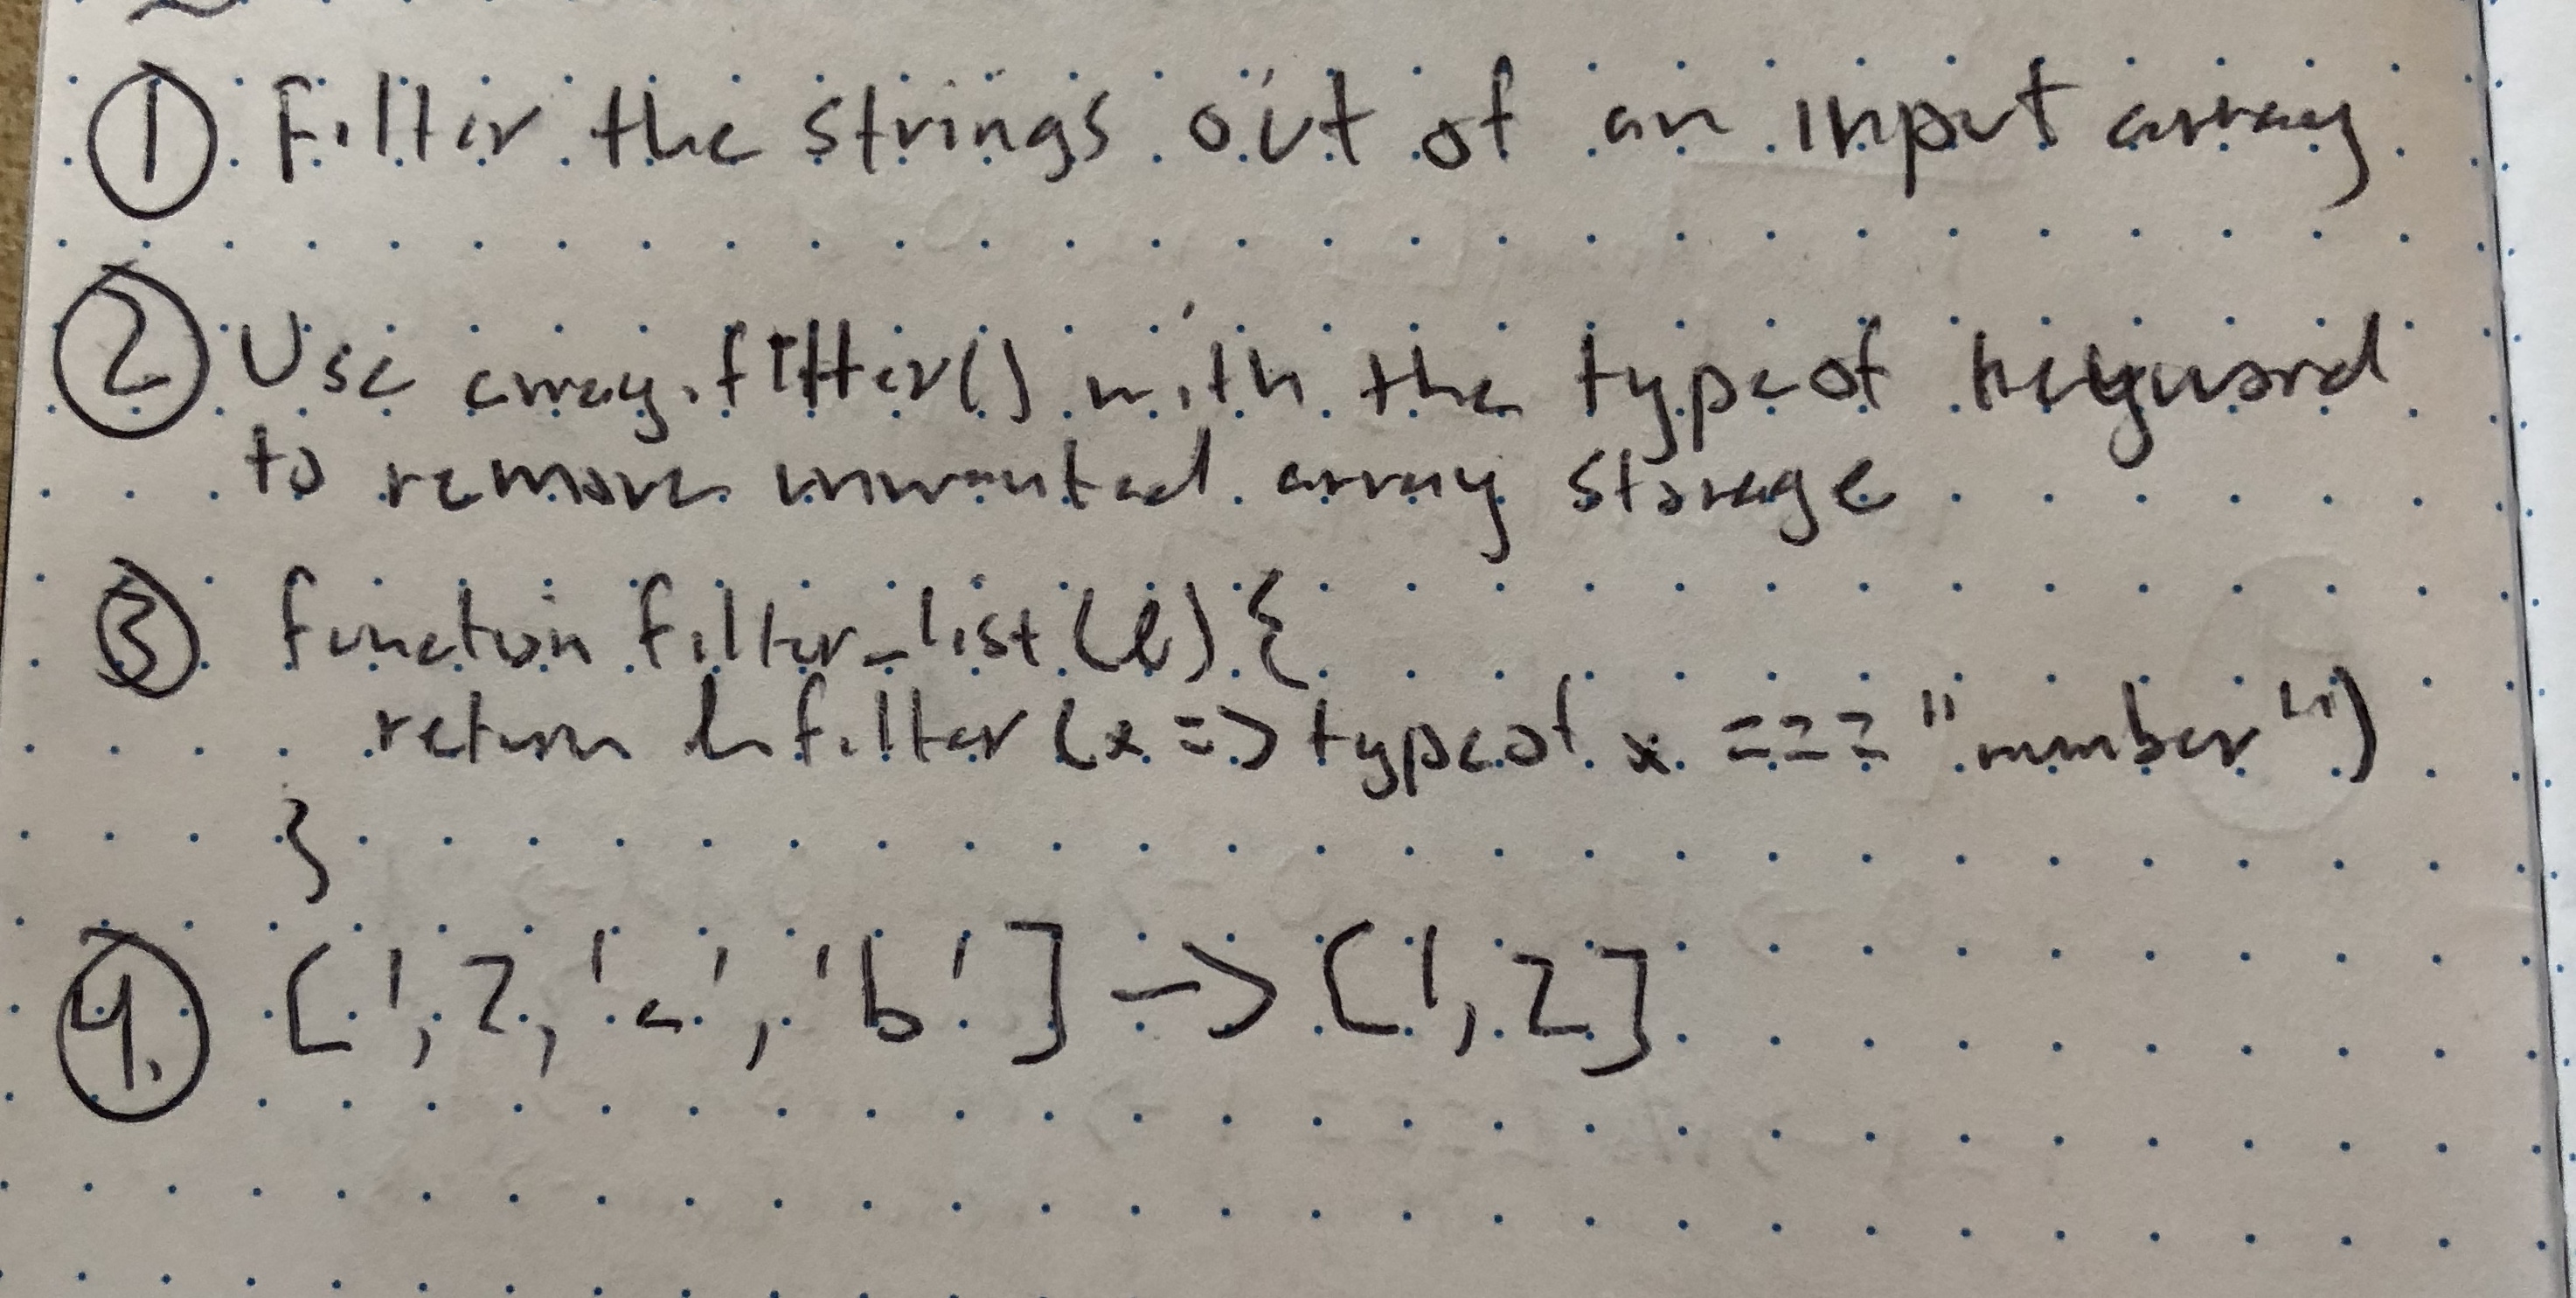 ① Filter the strings out of an input array
② Use array.filter() with the typeof keyword
to remove unwanted array storage
③ function filter_list(l) {
return l.filter(x => typeof x === "number")
}
④. [1, 2, 'a', 'b'] -> [1, 2]